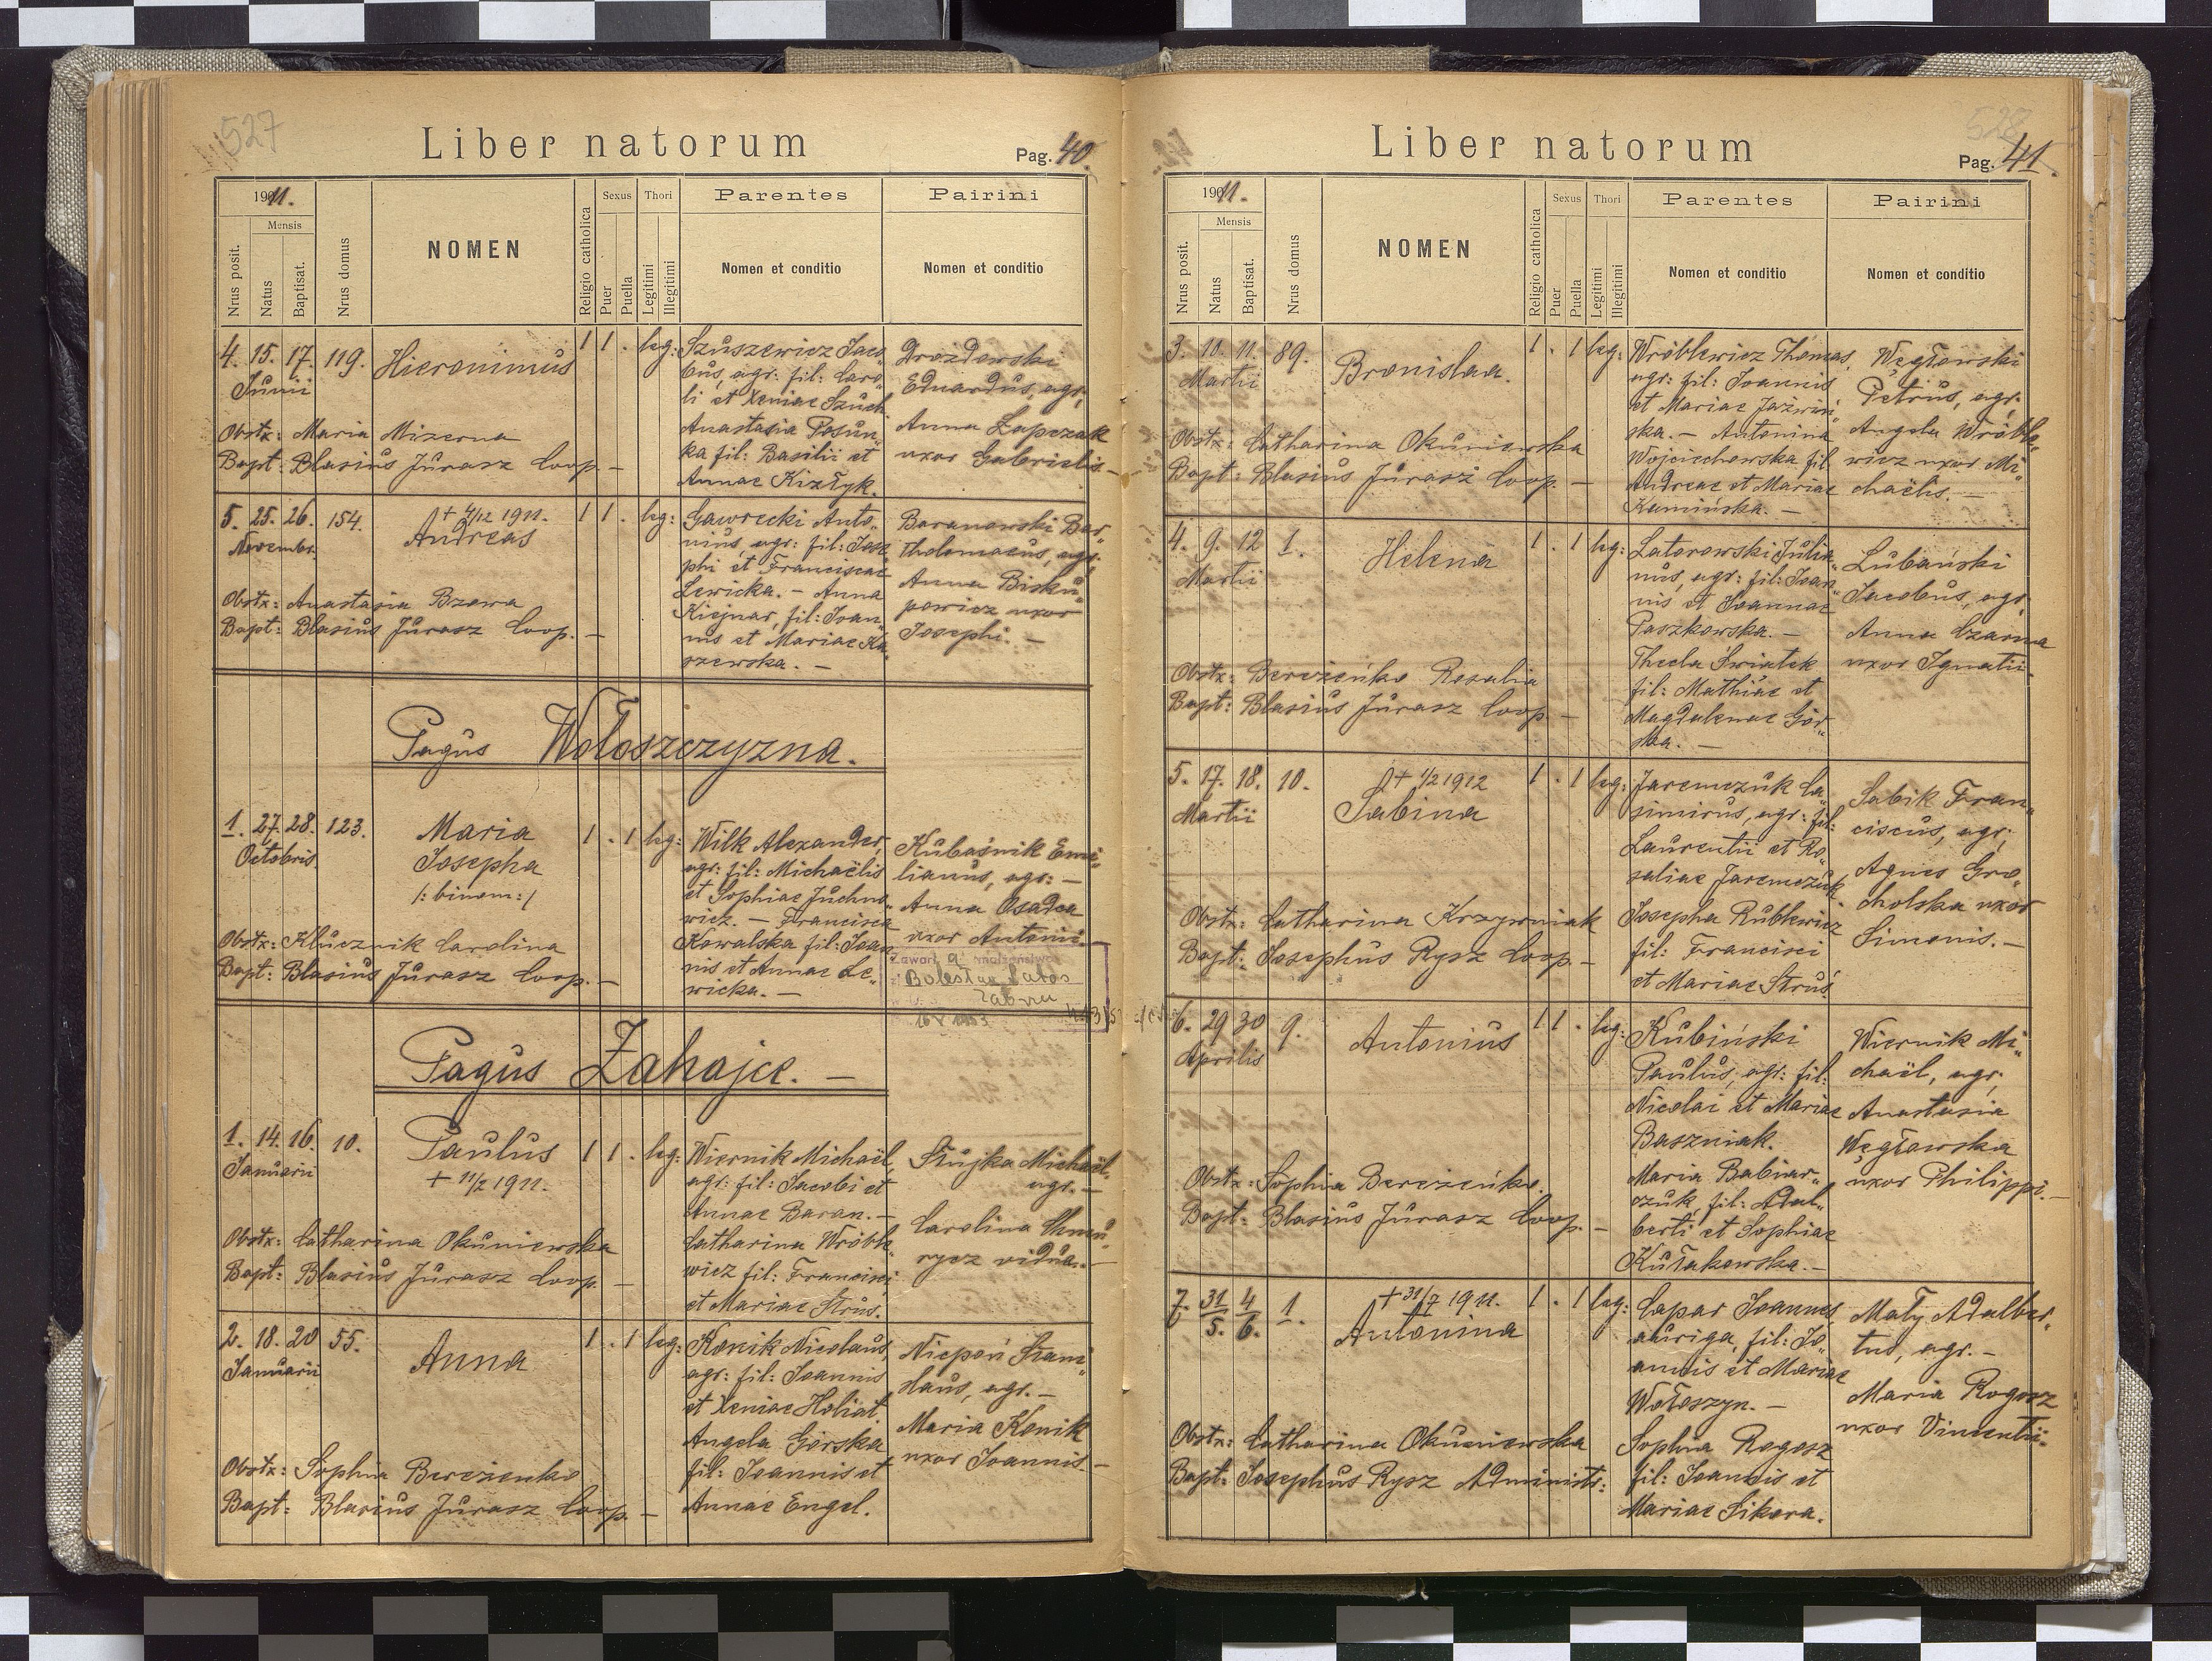 527
Liber natorum
Pag. 40.
1911.
Nrus posit.
Mensis
Natus
Baptisat.
Nrus domus
NOMEN
Religio catholica
Sexus
Puer
Puella
Thori
Legitimi
Illegitimi
Parentes
Nomen et conditio
Pairini
Nomen et conditio
4. 15. 17. 119. Hieronimus 1 1 . leg:
Junii
Obstx: Maria Mizerna
Bapt: Blasius Jurasz Coop. —
Szuszewicz Jaco„
bus, agr: fil: Caro„
li et Xeniae Szuch.
Anastasia Posun„
ka fil: Basilii et
Annae Kizłyk.
Drozdowski
Eduardus, agr;
Anna Łapczak
uxor Gabrielis —
5. 25. 26. 154. + 4/12 1911. 1 1 . leg:
Novembr. Andreas
Obstx: Anastasia Brzewa
Bapt: Blasius Jurasz Coop. —
Gawrecki Anto„
nius, agr: fil: Jose„
phi et Franciscae
Lewicka. — Anna
Kiejnar, fil: Joan„
nis et Mariae Ka„
szewska. —
Baranowski Bar„
tholomaeus, agr:
Anna Bisku„
powicz uxor
Josephi. —
Pagus Wołoszczyzna.
1. 27. 28. 123. Maria 1 . 1 leg:
Octobris Josepha
/: binom: /
Obstx: Klucznik Carolina
Bapt: Blasius Jurasz Coop. —
Wilk Alexander,
agr: fil: Michaëlis
et Sophiae Juchno„
wicz. — Francisca
Kowalska fil: Joan„
nis et Annae Le„
wicka. —
Kubaśnik Emi„
lianus, agr: —
Anna Osadca
uxor Antonii —
Zawarł a małżeństwo
Bolesław Łabos
Żabnu
16 V 1953
Pagus Zahajce. —
1. 14. 16. 10. Paulus 1 1 . leg:
Januarii + 11/2 1911.
Obstx: Catharina Okuniewska
Bapt: Blasius Jurasz Coop. —
Wiernik Michaël,
agr: fil: Jacobi et
Annae Baran. —
Catharina Wróble„
wicz fil: Francisci
et Mariae Struś.
Stujka Michaël
agr. —
Carolina
rycz vidua. —
2. 18. 20 55. Anna 1 . 1 leg:
Januarii
Obstx: Sophia Bereżenko
Bapt: Blasius Jurasz Coop. —
Konik Nicolaus,
agr: fil: Joannis
et Xeniae Holiat.
Angela Górska
fil: Joannis et
Annae Engel.
Niepoń Stani„
slaus, agr. —
Maria Konik
uxor Joannis. —
528
Liber natorum
Pag. 41.
1911.
Nrus posit.
Mensis
Natus
Baptisat.
Nrus domus
NOMEN
Religio catholica
Sexus
Puer
Puella
Thori
Legitimi
Illegitimi
Parentes
Nomen et conditio
Pairini
Nomen et conditio
3. 10. 11. 89. Bronislaa. 1 . 1 leg:
Martii
Obstx: Catharina Okuniewska
Bapt: Blasius Jurasz Coop. —
Wróblewicz Thomas,
agr: fil: Joannis
et Mariae Jaźwiń„
ska. — Antonina
Wojciechowska fil
Andreae et Mariae
Kamińska. —
Węgłowski
Petrus, agr.
Angela Wróble„
wicz uxor Mi„
chaëlis. —
4. 9. 12 1. Helena 1 . 1 leg:
Martii
Obstx: Bereżeńko Rosalia
Bapt: Blasius Jurasz Coop. —
Latorowski Julia„
nus, agr: fil: Joan„
nis et Joannae
Paszkowska. —
Thecla Światek
fil: Mathiae et
Magdalenae Gór„
ska. —
Lubański
Jacobus, agr.
Anna Czarna
uxor Ignatii.
5. 17. 18. 10. + 1/2 1912 1 . 1 leg:
Martii Sabina
Obstx: Catharina Krzywniak
Bapt: Josephus Rysz Coop. —
Jaremczuk Ca„
simirus, agr: fil:
Laurentii et Ro„
saliae Jaremczuk.
Josepha Rublewicz
fil: Francisci
et Mariae Struś.
Sabik Fran„
ciscus, agr;
Agnes Gro„
cholska uxor
Simonis. —
6. 29 30 9. Antonius 1 1 . leg:
Aprilis
Obstx: Sophia Bereżeńko.
Bapt: Blasius Jurasz Coop. —
Kubiński
Paulus, agr: fil:
Nicolai et Mariae
Baszniak.
Maria Babiar„
czuk, fil: Adal„
berti et Sophiae
Kułakowska. —
Wiernik Mi„
chaël, agr;
Anastasia
Węgłowska
uxor Philippi. —
7. 31/5. 4/6. 1. + 31/7 1911. 1 . 1 leg:
Antonina
Obstx: Catharina Okuniewska
Bapt: Josephus Rysz Administr:
Capar Joannes,
auriga, fil: Jo„
annis et Mariae
Wołoszyn. —
Sophia Rogosz
fil: Joannis et
Mariae Sikora.
Mały Adalber„
tus, agr. —
Maria Rogosz
uxor Vincentii.